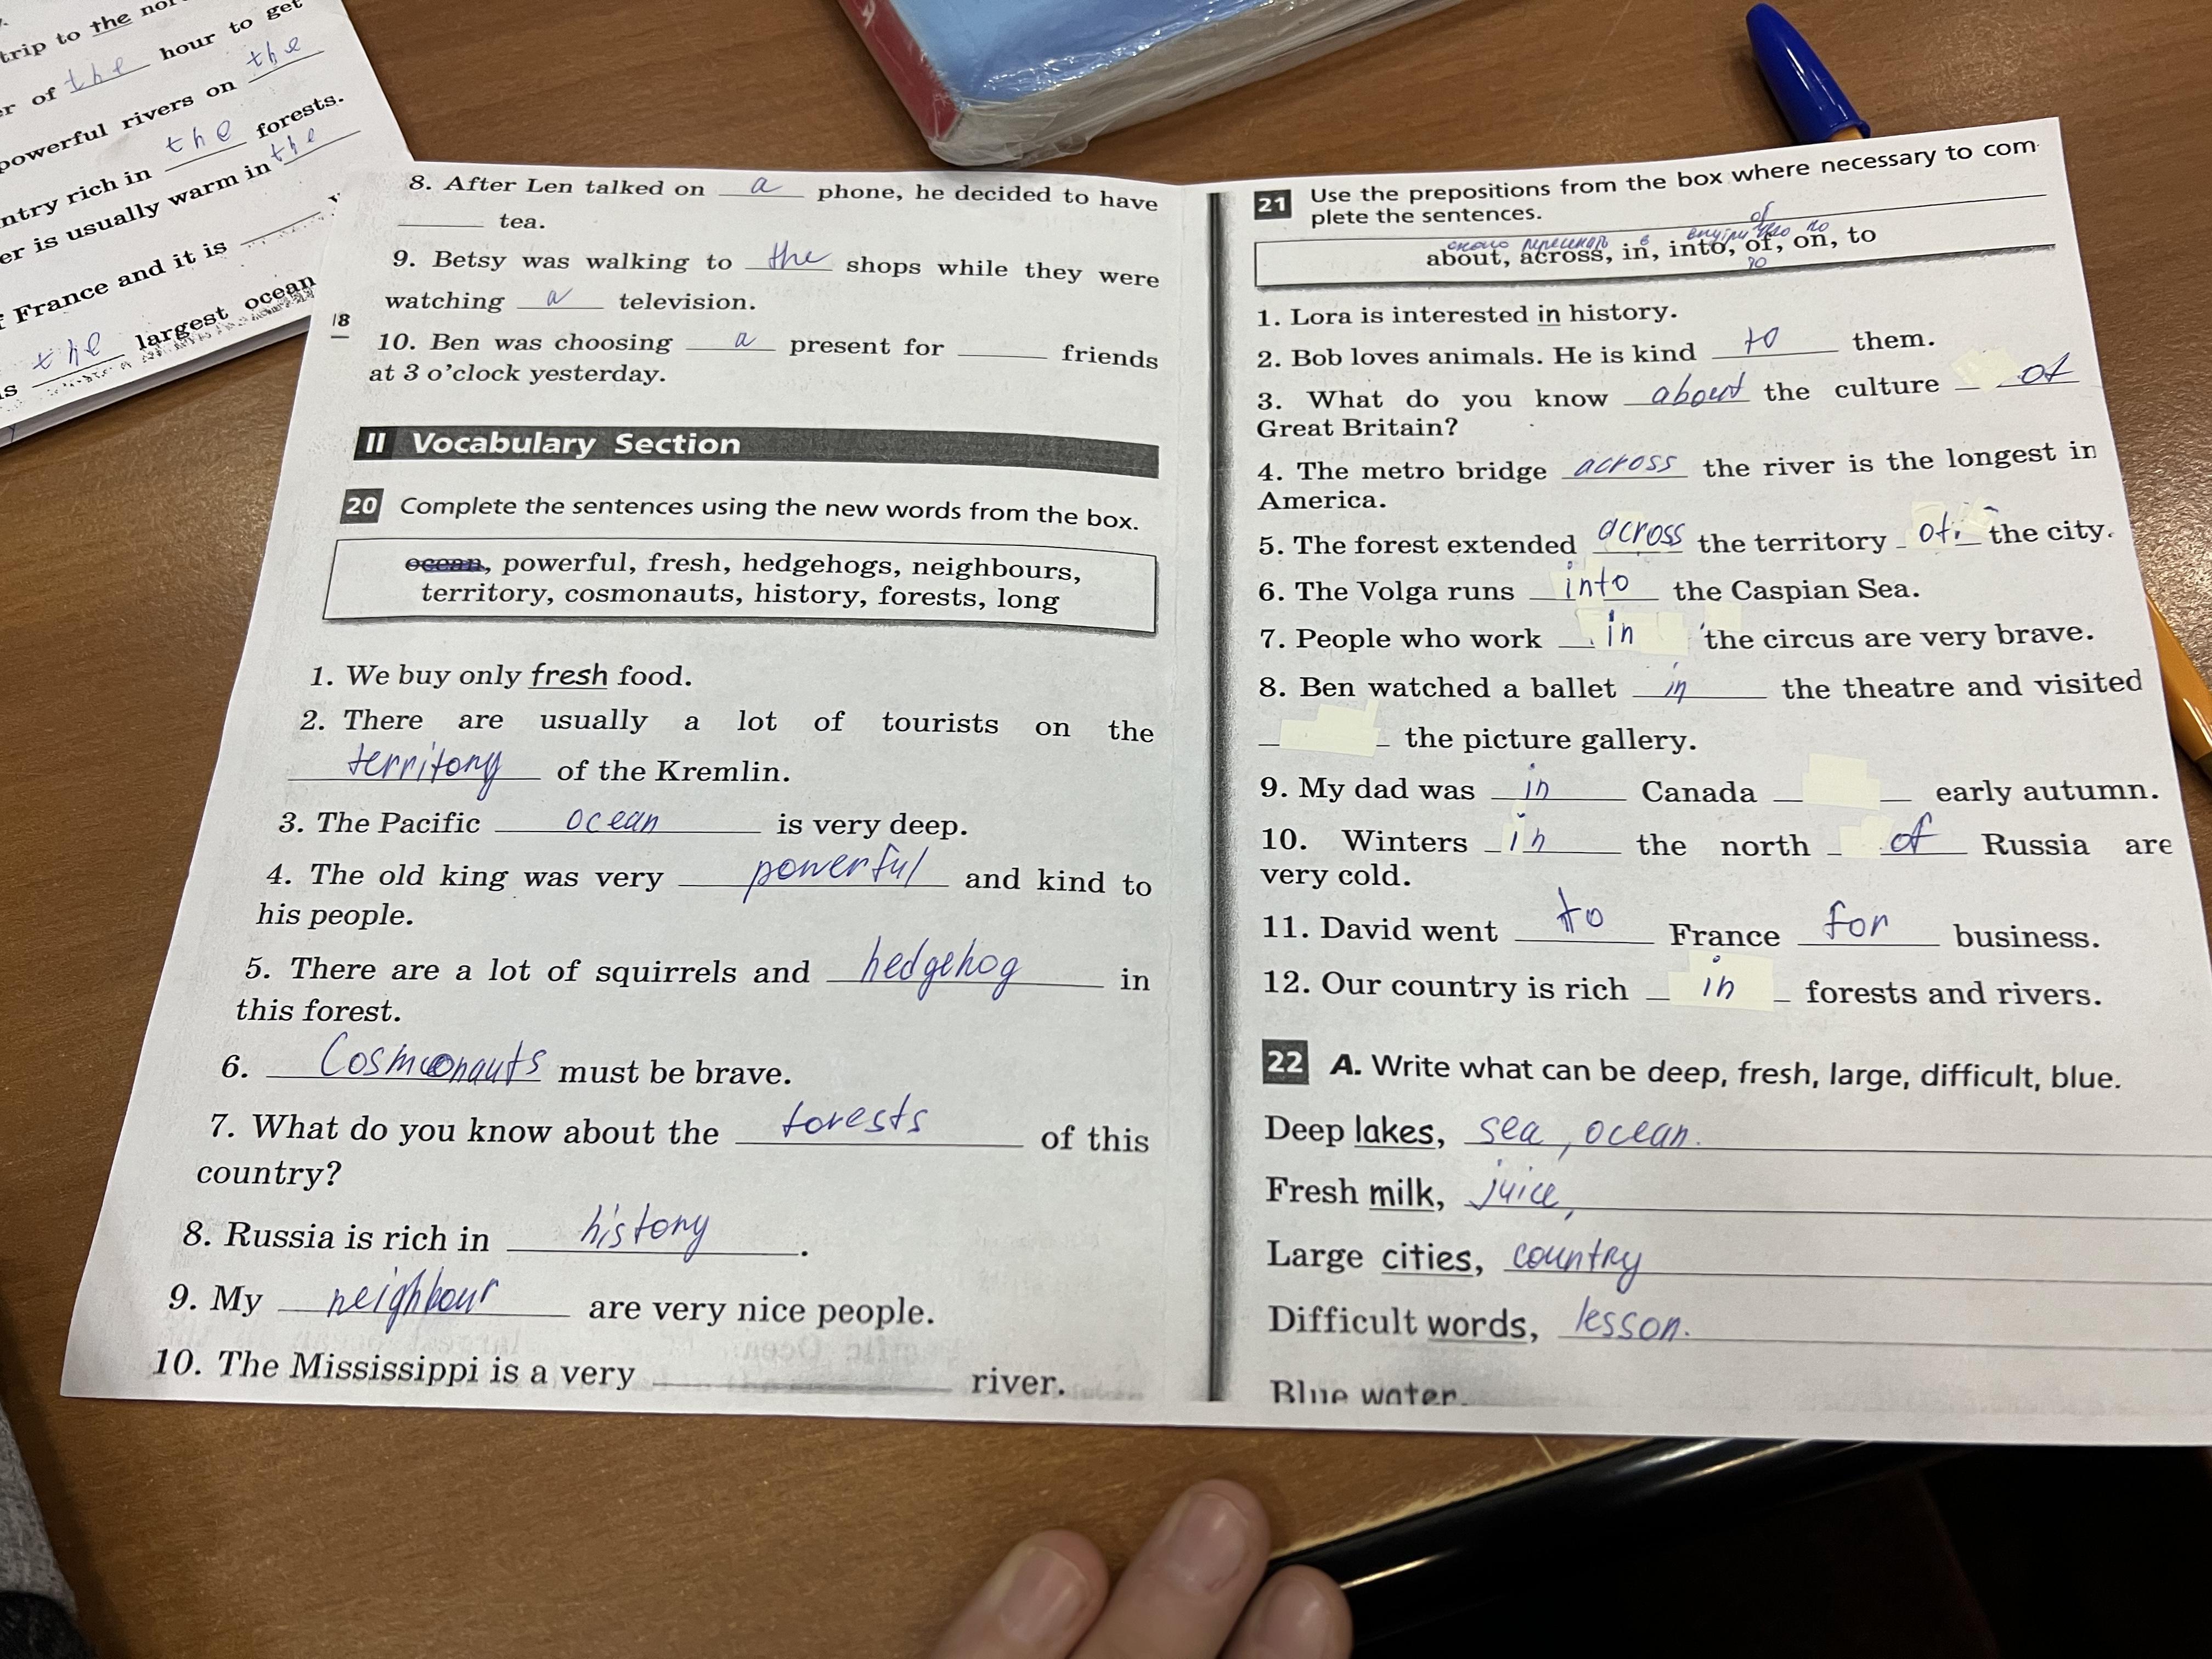 trip to the
of the hour to get
powerful rivers on the
rich in the forests.
er is usually warm in the
France and it is
the largest ocean
8. After Len talked on a phone, he decided to have
tea.
9. Betsy was walking to the shops while they were
watching a television.
18
10. Ben was choosing a present for friends
at 3 o'clock yesterday.
II Vocabulary Section
20 Complete the sentences using the new words from the box.
ocean, powerful, fresh, hedgehogs, neighbours,
territory, cosmonauts, history, forests, long
1. We buy only fresh food.
2. There are usually a lot of tourists on the
territory of the Kremlin.
3. The Pacific ocean is very deep.
4. The old king was very powerful and kind to
his people.
5. There are a lot of squirrels and hedgehog in
this forest.
6. Cosmonauts must be brave.
7. What do you know about the forests of this
country?
8. Russia is rich in history.
9. My neighbour are very nice people.
10. The Mississippi is a very river.
21 Use the prepositions from the box where necessary to com
plete the sentences.
of
в по
about, across, in, into, of, on, to
1. Lora is interested in history.
2. Bob loves animals. He is kind to them.
3. What do you know about the culture of
Great Britain?
4. The metro bridge across the river is the longest in
America.
5. The forest extended across the territory of the city.
6. The Volga runs into the Caspian Sea.
7. People who work in the circus are very brave.
8. Ben watched a ballet in the theatre and visited
the picture gallery.
9. My dad was in Canada early autumn.
10. Winters in the north of Russia are
very cold.
11. David went to France for business.
12. Our country is rich in forests and rivers.
22 A. Write what can be deep, fresh, large, difficult, blue.
Deep lakes, sea, ocean.
Fresh milk, juice,
Large cities, country
Difficult words, lesson.
Blue water.